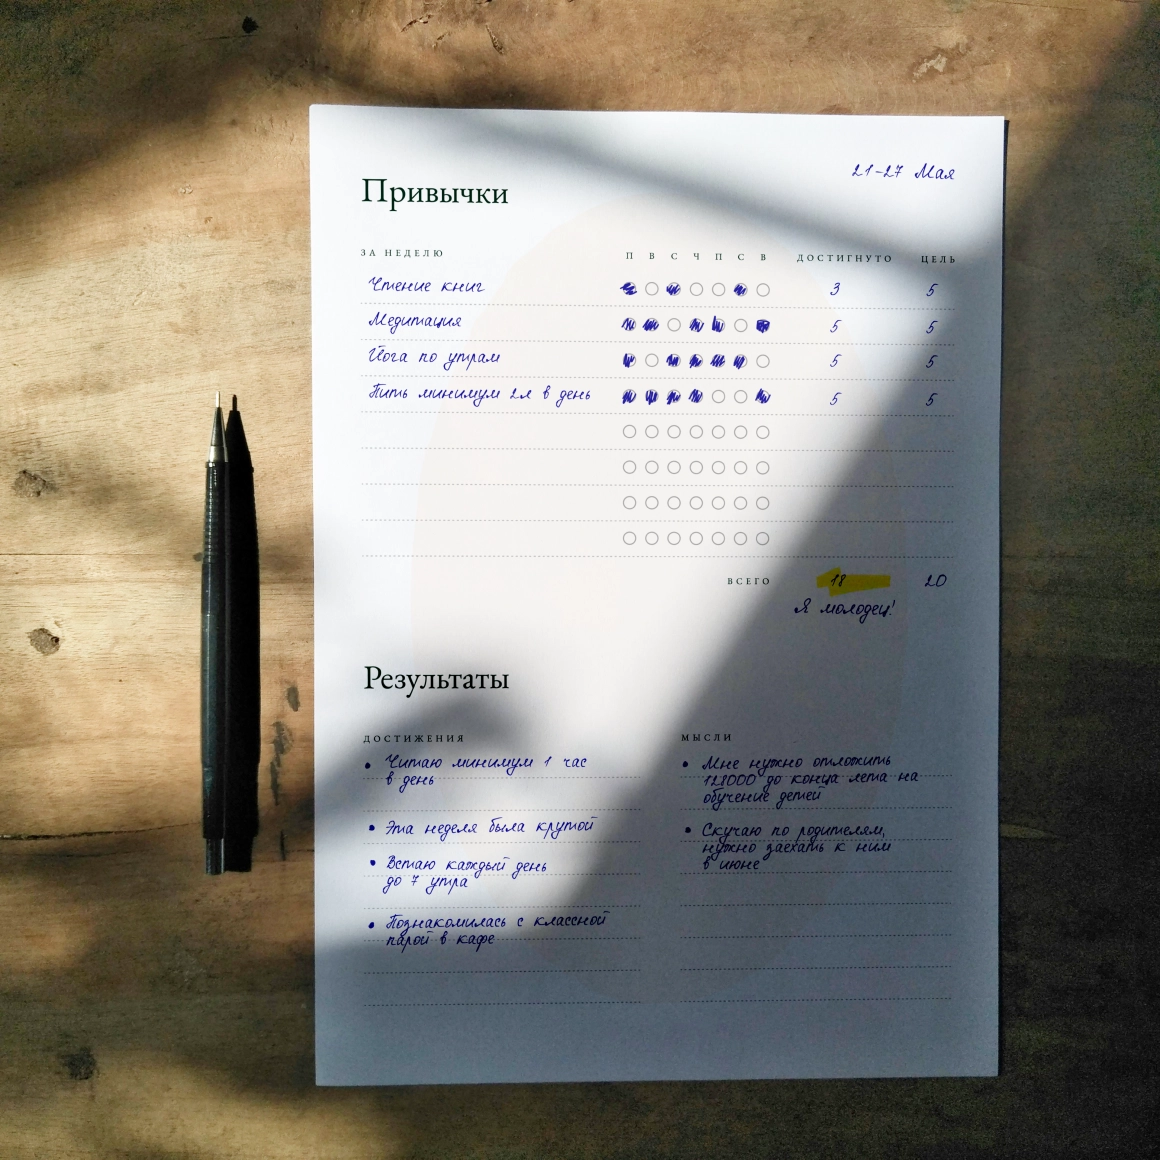 21-27 Мая
Привычки
ЗА НЕДЕЛЮ П В С Ч П С В ДОСТИГНУТО ЦЕЛЬ
Чтение книг 3 5
Медитация 5 5
Йога по утрам 5 5
Пить минимум 2л в день 5 5
ВСЕГО 18 20
Я молодец!
Результаты
ДОСТИЖЕНИЯ
• Читаю минимум 1 час
в день
• Эта неделя была крутой
• Встаю каждый день
до 7 утра
• Познакомилась с классной
парой в кафе
МЫСЛИ
• Мне нужно отложить
128000 до конца лета на
обучение детей
• Скучаю по родителям,
нужно заехать к ним
в июне